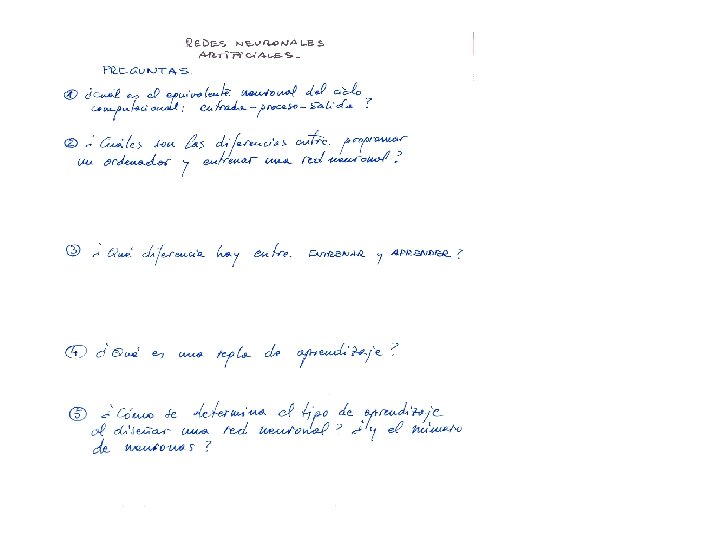 REDES NEURONALES
ARTIFICIALES.
PREGUNTAS.
① ¿Cual es el equivalente neuronal del ciclo
computacional: entrada-proceso-salida?
② ¿Cuáles son las diferencias entre programar
un ordenador y entrenar una red neuronal?
③ ¿Qué diferencia hay entre ENTRENAR y APRENDER?
④ ¿Qué es una regla de aprendizaje?
⑤ ¿Cómo se determina el tipo de aprendizaje
al diseñar una red neuronal? ¿y el número
de neuronas?